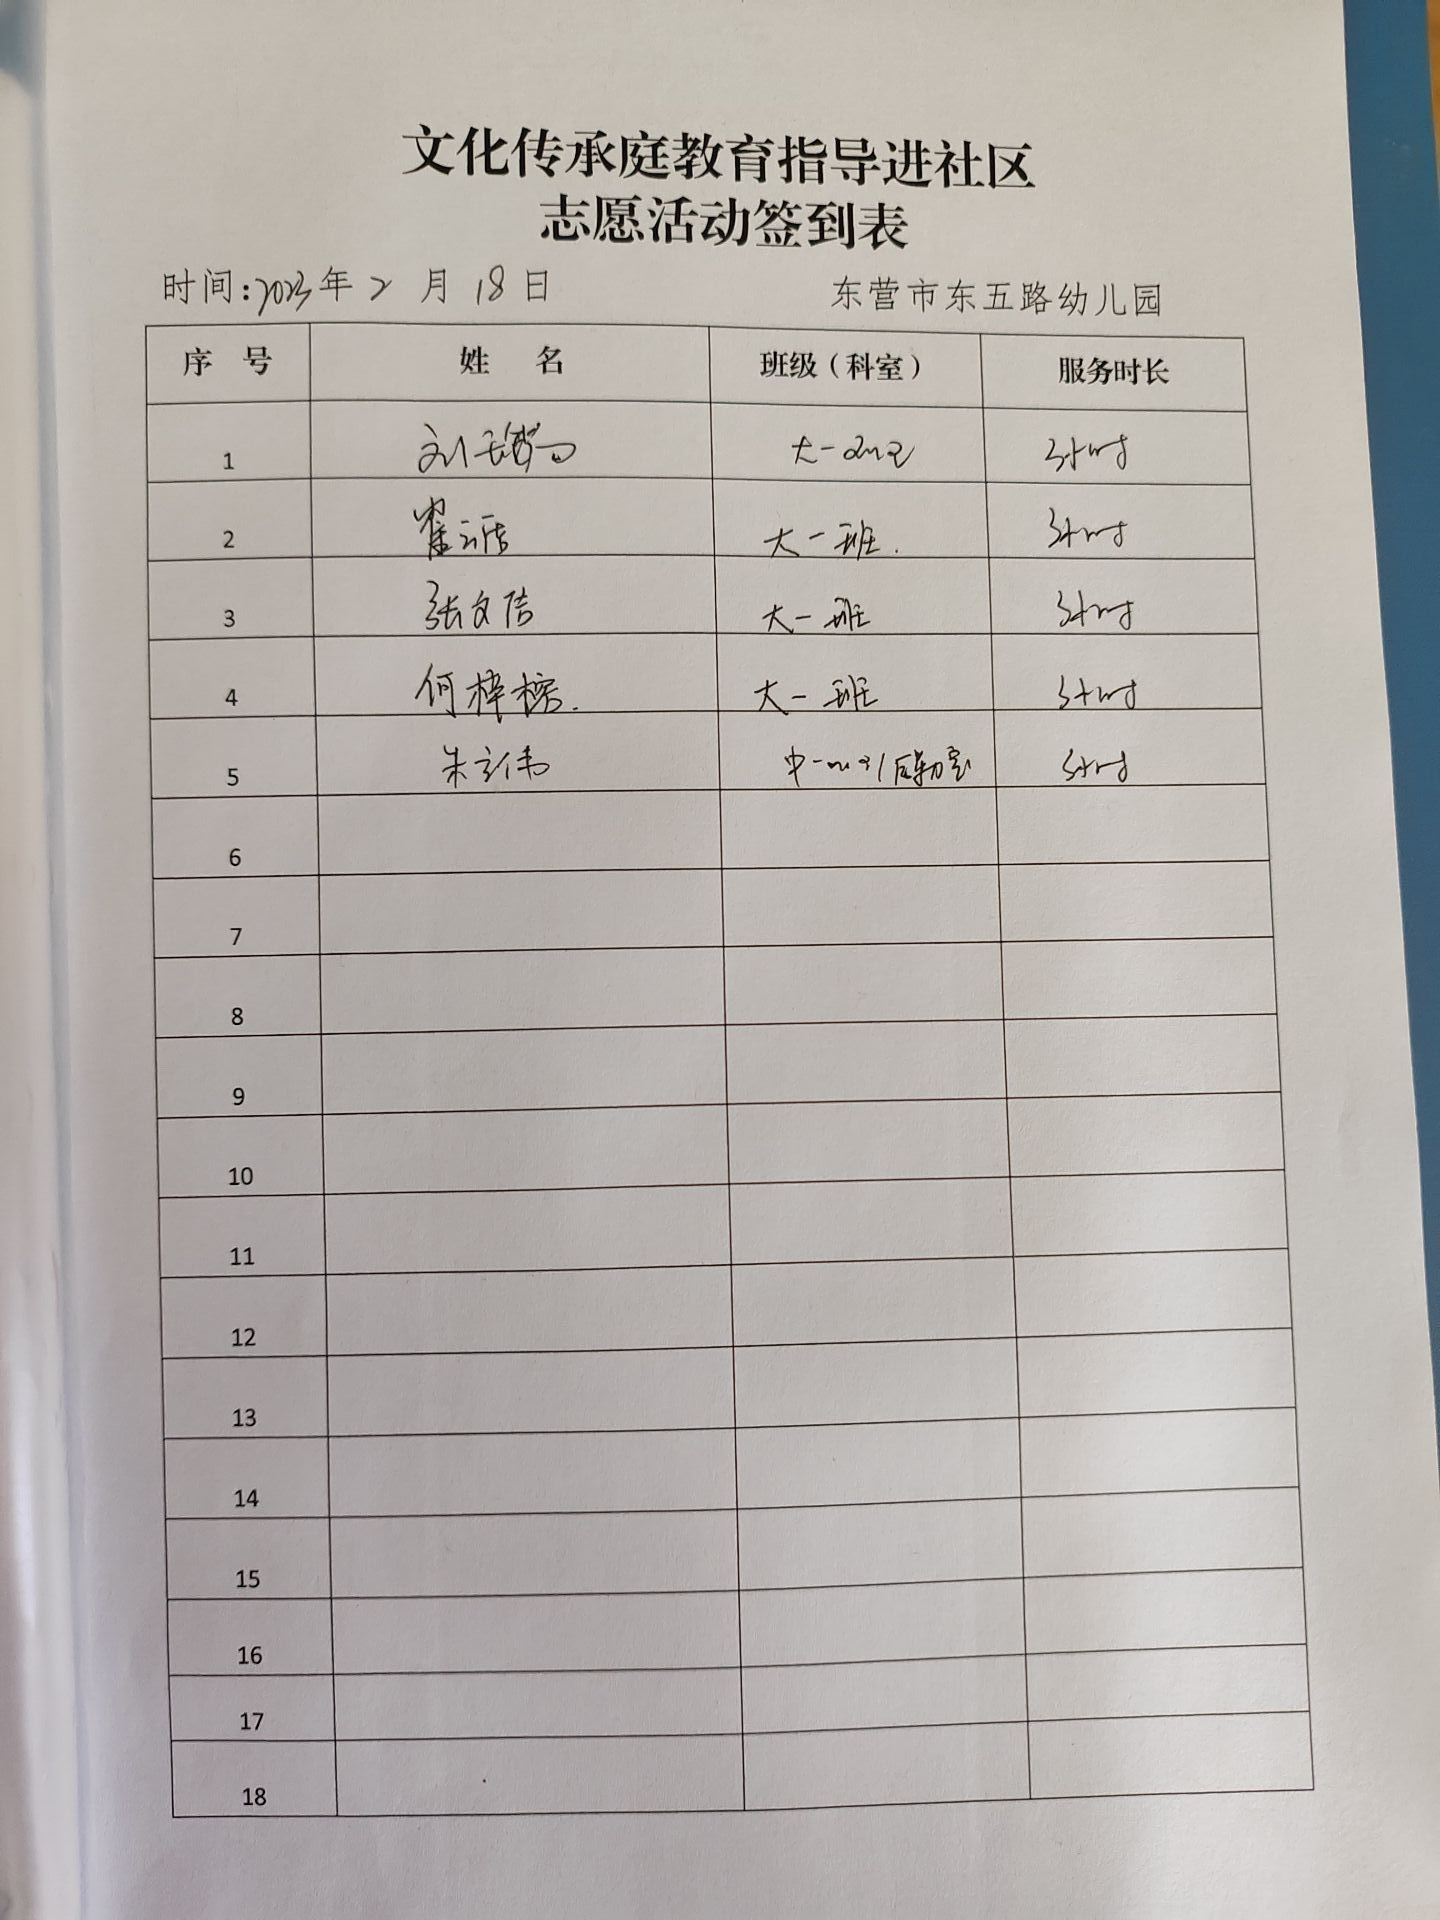 文化传承庭教育指导进社区
志愿活动签到表
时间:2023年2月18日 东营市东五路幼儿园
序 号 姓 名 班级（科室） 服务时长
1 大一 3小时
2 大一班. 3小时
3 张文洁 大一班 3小时
4 何梓榕. 大一班 3小时
5 朱立伟 中一 3小时
6
7
8
9
10
11
12
13
14
15
16
17
18